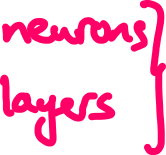 neurons
layers